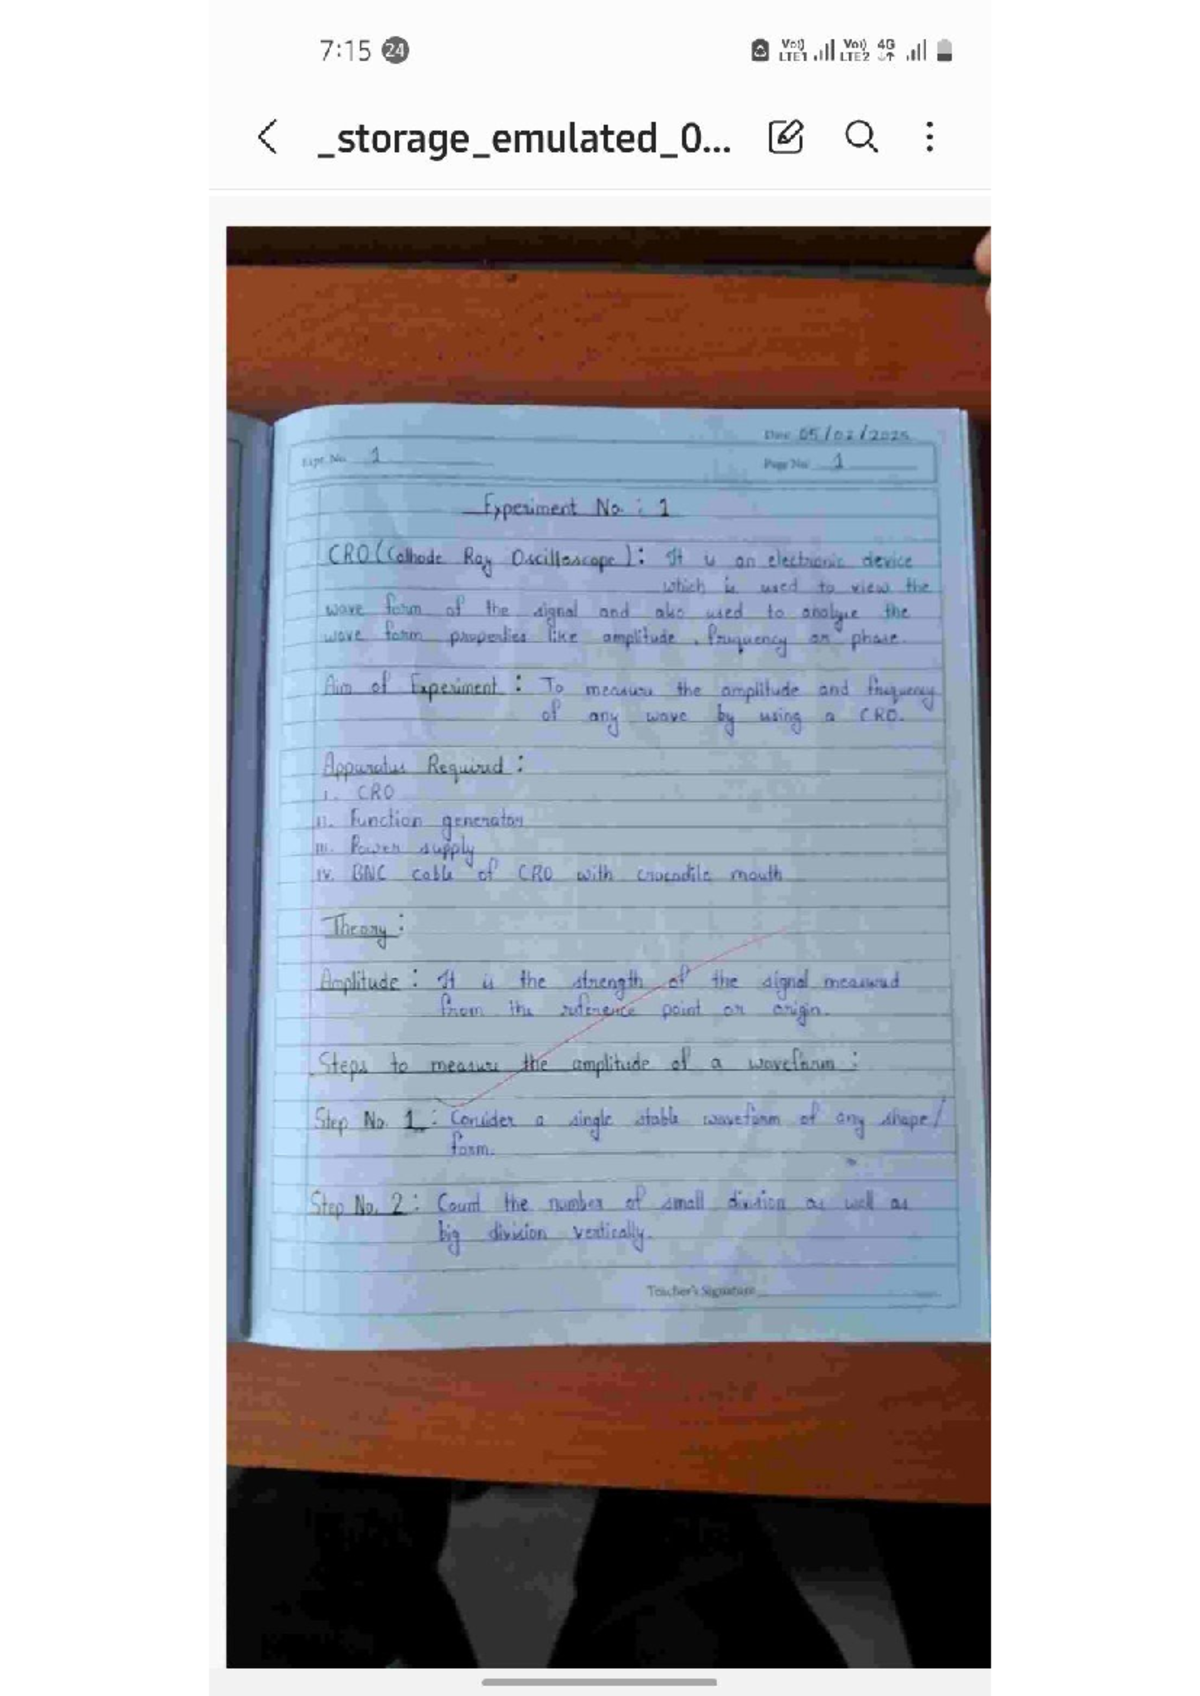 7:15 24
Vo)) LTE1 Vo)) LTE2 4G
_storage_emulated_0...
Date 05/02/2025
Expt. No. 1
Page No. 1
Experiment No. : 1
CRO (Cathode Ray Oscilloscope) : It is an electronic device
which is used to view the
wave form of the signal and also used to analyse the
wave form properties like amplitude, frequency or phase.
Aim of Experiment : To measure the amplitude and frequency
of any wave by using a CRO.
Apparatus Required :
i. CRO
ii. Function generator
iii. Power supply
iv. BNC cable of CRO with crocodile mouth
Theory :
Amplitude : It is the strength of the signal measured
from the reference point or origin.
Steps to measure the amplitude of a waveform :
Step No. 1 : Consider a single stable waveform of any shape/
form.
Step No. 2 : Count the number of small division as well as
big division vertically.
Teacher's Signature